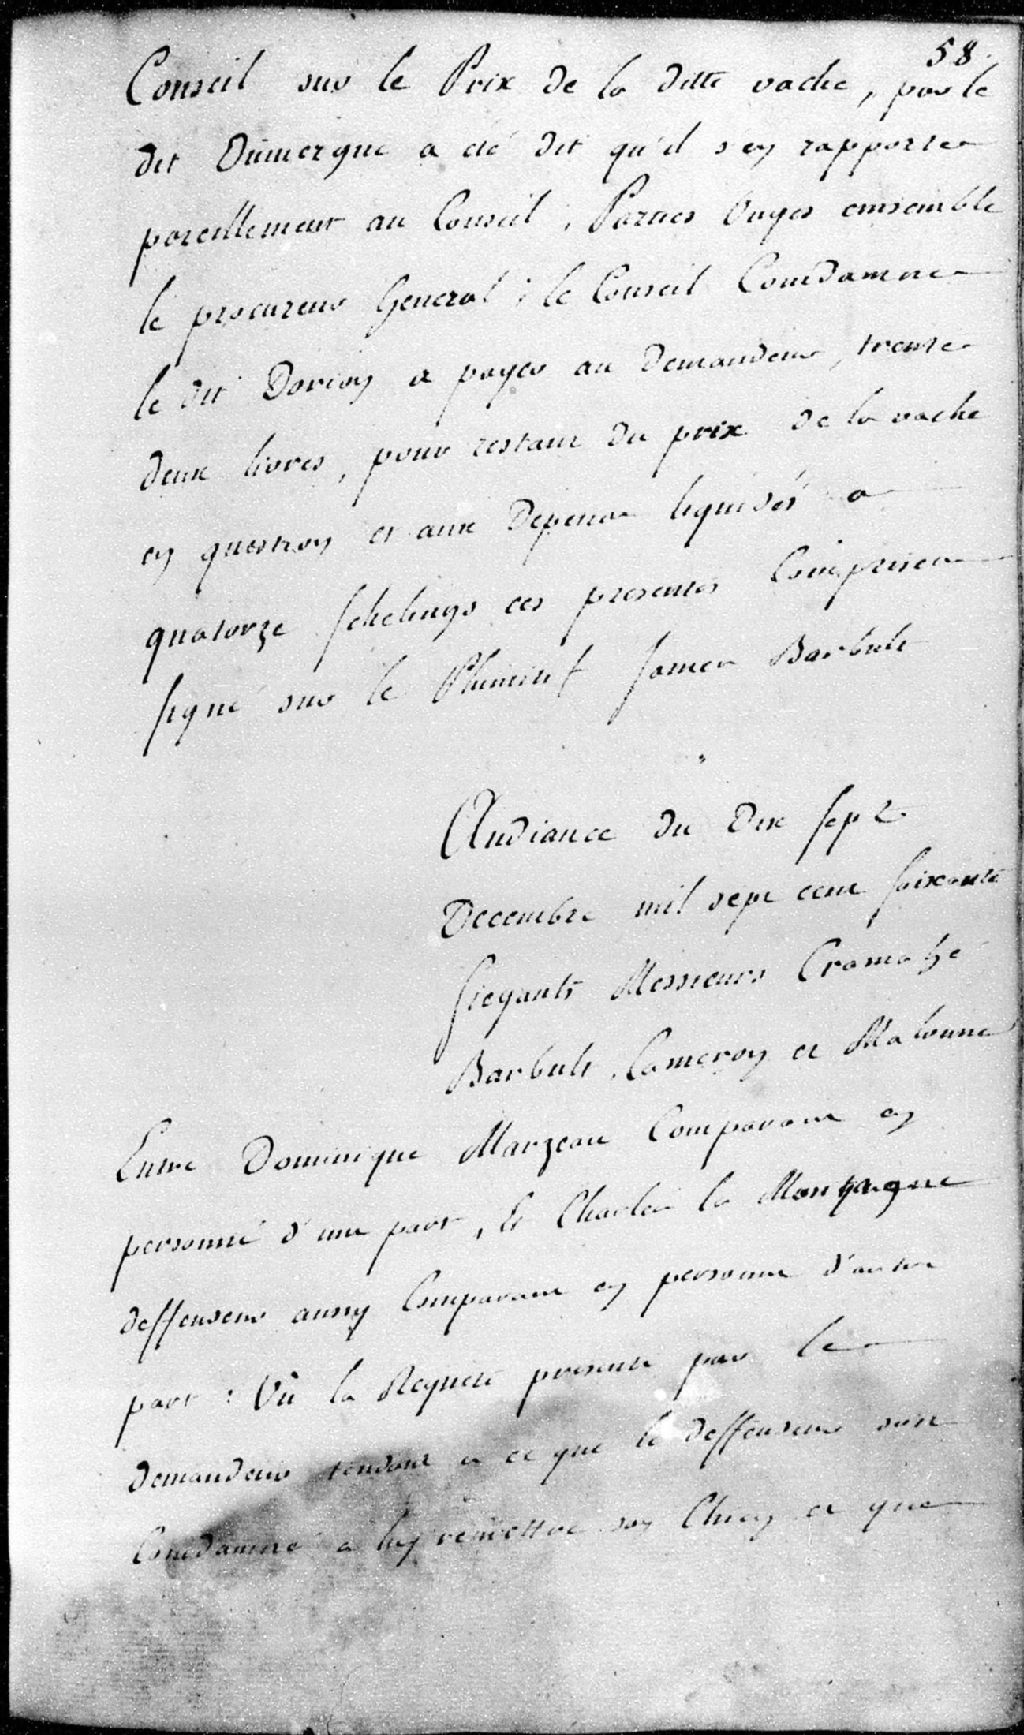 58.
Conseil sur le Prix de la ditte vache, par le
dit Dumergue a eté dit qu'il s'en rapporte
pareillement au Conseil, Parties Ouyes ensemble
le procureur General ; le Conseil Condamne
le dit Dorion a payer au Demandeur, trente
deux livres, pour restant du prix de la vache
en question et aux Depens liquidés a
quatorze schelings ces presentes Comprises
signé sur le Plumitif James Barbult
Audiance du Dix sept
Decembre mil sept cent soixante
siegants Messieurs Cramahé
Barbult, Cameron et Maloune
Entre Dominique Marzeau Comparant en
personne d'une part, Et Charles la Montagne
deffendeur aussy Comparant en personne d'autre
part : Vû la Requete presenté par le
demandeur tendant a ce que le deffendeur soit
Condamné a luy remettre son Chien et que